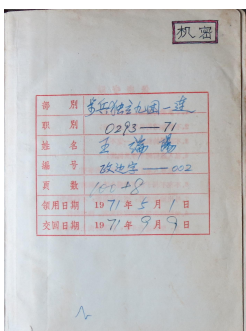 机密
部 別 步兵独立九团一连
职 別 0293——71
姓 名 王瑞
编 号 故边字——002
页 数 100+8
领用日期 1971年5月1日
交回日期 1971年9月9日